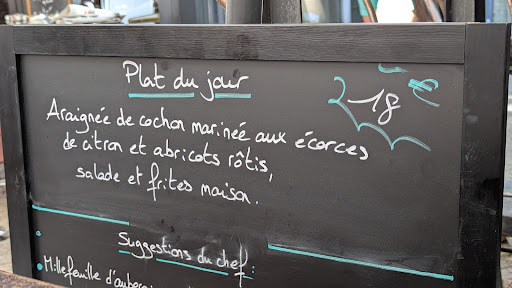 Plat du jour
18 €
Araignée de cochon marinée aux écorces
de citron et abricots rôtis,
salade et frites maison.
Suggestions du chef :
• Millefeuille